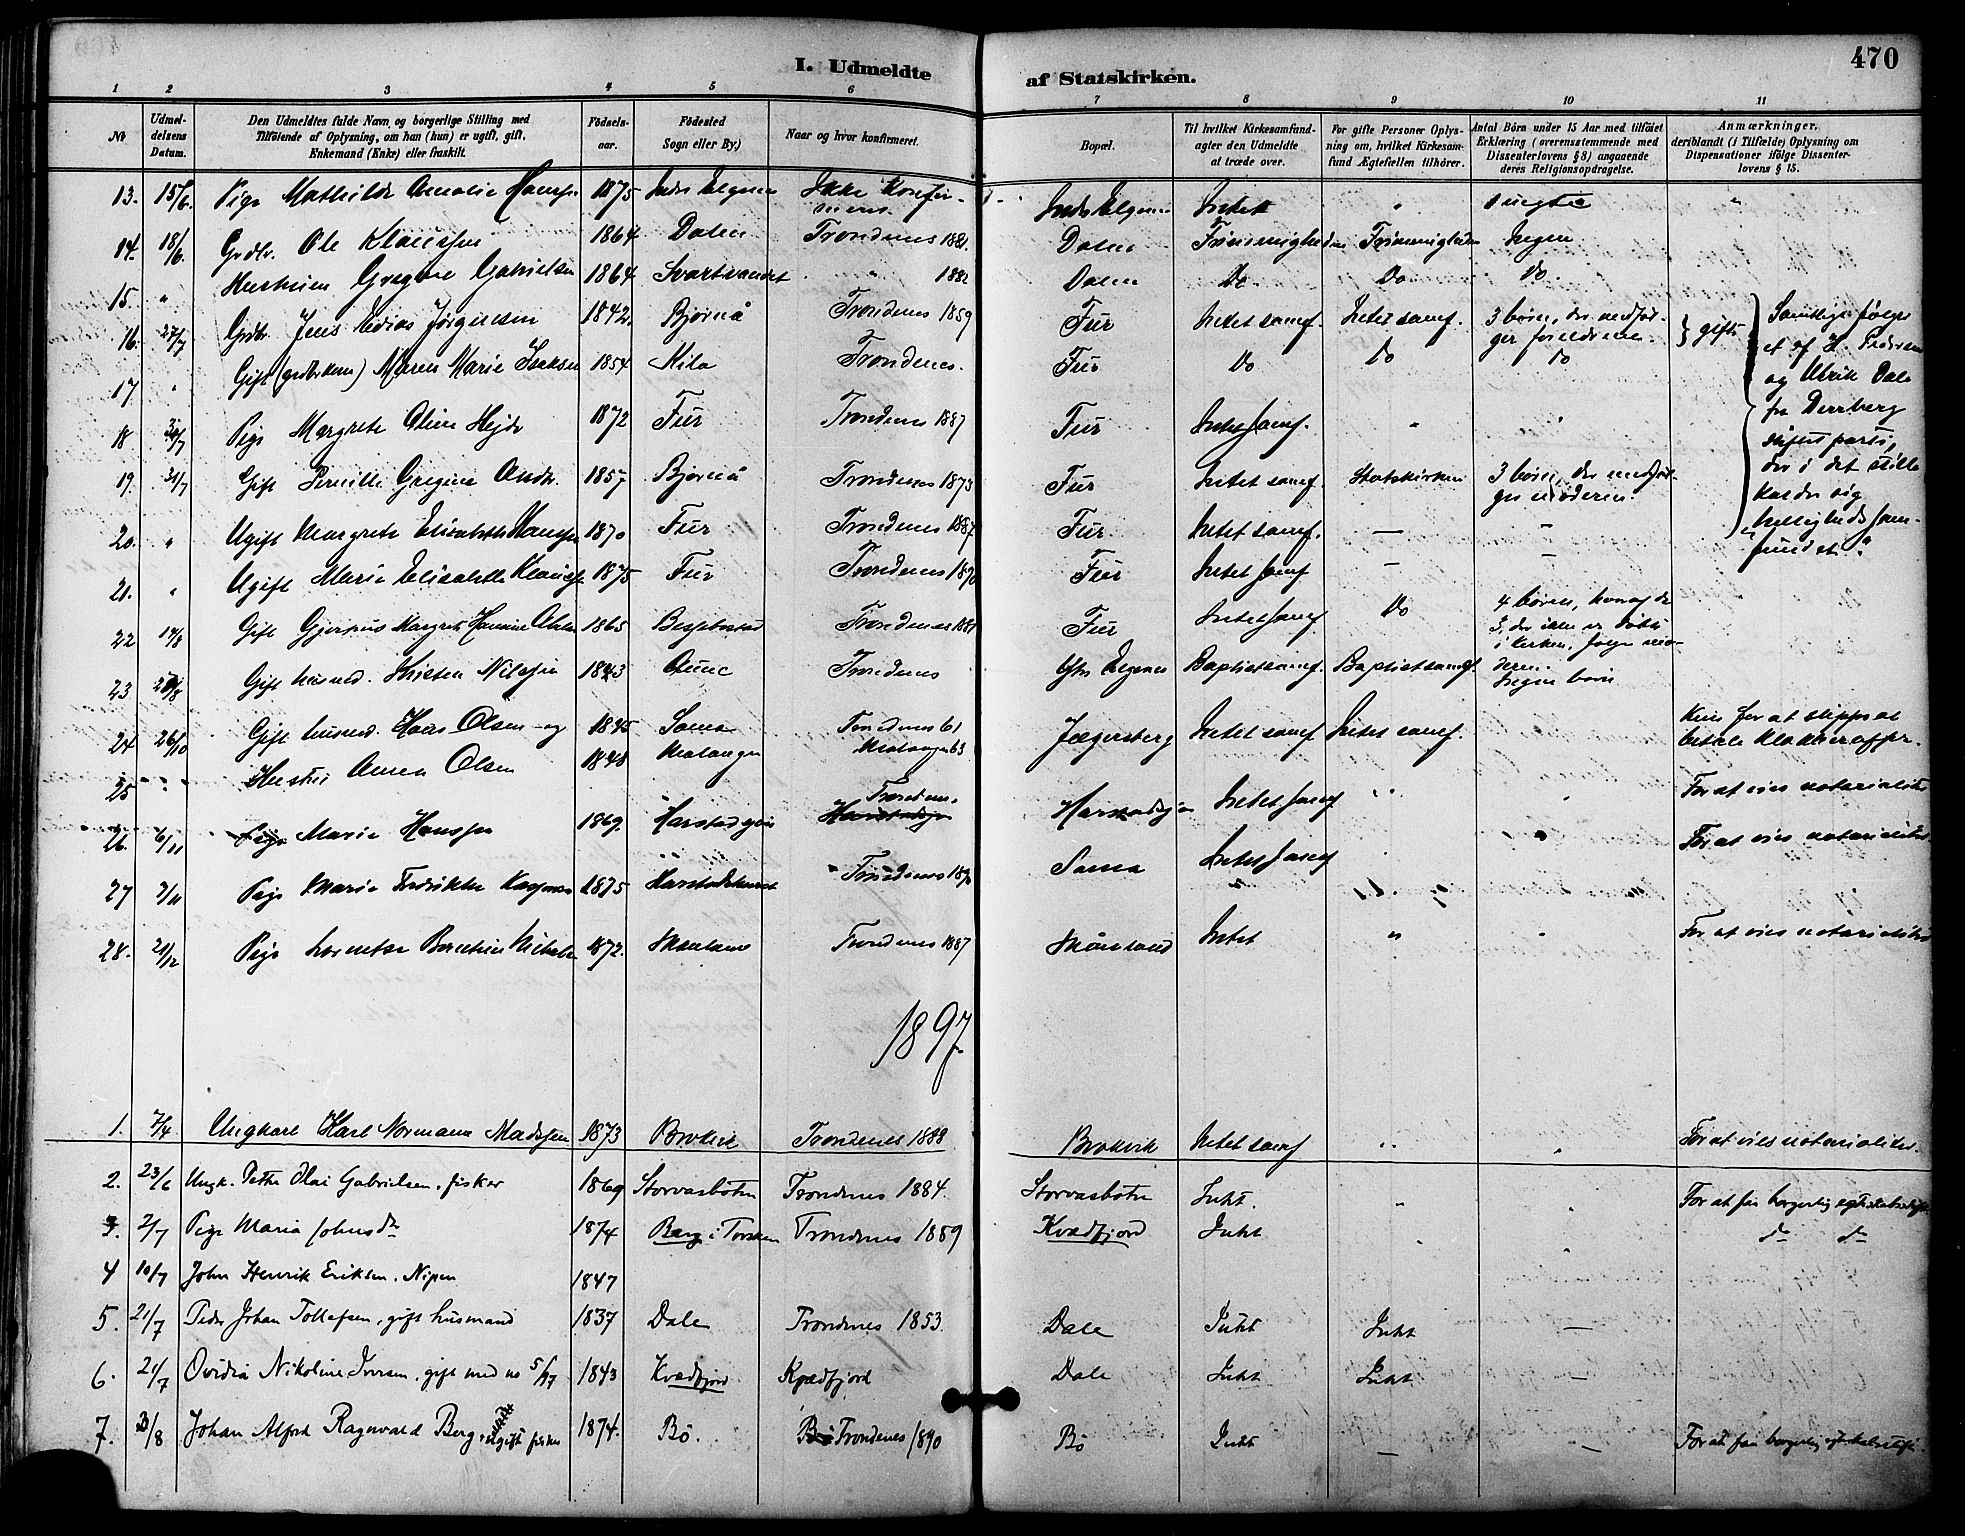 470
I. Udmeldte af Statskirken.
1 2 3 4 5 6 7 8 9 10 11
No
Udmel-
delsens
Datum.
Den Udmeldtes fulde Navn og borgerlige Stilling med
Tilføiende af Oplysning, om han (hun) er ugift, gift,
Enkemand (Enke) eller fraskilt.
Fødsels-
aar.
Fødested
Sogn eller By,)
Naar og hvor konfirmeret.
Bopæl.
Til hvilket Kirkesamfund-
agter den Udmeldte
at træde over.
For gifte Personer Oplys-
ning om, hvilket Kirkesam-
fund Ægtefællen tilhører.
Antal Børn under 15 Aar med tilføiet
Erklæring (overensstemmende med
Dissenterlovens § 8) angaaende
deres Religionsopdragelse.
Anmærkninger,
deriblandt (i Tilfælde) Oplysning om
Dispensationer ifølge Dissenter-
lovens § 15.
13. 15/6. Pige Mathilde Amalie Hanssen 1875 Indre Elgenes Ikke konfir- Indre Elgenes Intet "
14. 18/6. Grdbr. Ole Klaussen 1864 Dalen Trondenes 1881. Dalen Frimenigheden Frimenigheden Ingen
15. " Hustruen Gregine Gabrielsen 1864 Svartvandet " 1882 Dalen Do Do Do.
16. 27/7 Grdbr. Jens Edias Jørgensen 1842. Bjørnå Trondenes 1859 Fur Intet samf. Intet samf. 3 børn, der medføl- } gifte Samtlige følge
ger forældrene.
17 " Gift (grdbrkone) Maren Marie Isaksen 1854 Kila Trondenes. Fur Do Do Do et af H. Pedersen
og Ulrik Dale
18 30/7 Pige Margrete Oline Hejde 1872 Fur Trondenes 1887 Fur Intet samf. " " fra Derrberg
stiftet parti,
19. 31/7 Gift Pernille Gregine Andr. 1857 Bjørnå Trondenes 1873 Fur Intet samf. Statskirken 3 børn, der medføl- der i det stille
ger moderen. kalder sig
20. " Ugift Margrete Elisabeth Hanssen 1870 Fur Trondenes 1887 Fur. Intet samf. — " "hellighedssam-
fundet".
21. " Ugift Marie Elisabeth Klaussen 1875 Fur Trondenes 1890 Fur Intet samf — —
22 14/8 Gift Margrete Hansine Olsen 1865 Trondenes 1881 Fur Intet samf. Do 4 børn, hvoraf de
3, der ikke er døbte
i kirken, følger mo-
deren.
23 Gift husmd. Kristen Nilssen 1843 Aune Trondenes Elgenes Baptistsamf. Baptistsamf. Ingen børn
24 26/10 Gift husmd. Hans Olsen og 1845 Sama Trondenes 61 Jægersberg Intet samf Intet samf. Kun for at slippe at
betale klokkeroffer.
25 " " Hustru Anna Olsen 1848 Malangen Malangen 63
26. 6/11 Pige Marie Hanssen 1869. Harstadsjøen Trondenes. Harstadsjøen Intet samf " " For at vies notarialiter
27 7/11 Pige Marie Fredrikke Kaspersen 1875 Trondenes 1890 Sama Intet samf " " For at vies notarialiter
28. 21/12 Pige Berntine Mikalsen 1872. Trondenes 1887 Skånland Intet " " For at vies notarialiter
1897.
1. 7/4 Ungkarl Karl Normann Madssen 1873 Brokvik Trondenes 1888 Brokvik Intet samf " " For at vies notarialiter.
2. 23/6 Ungk. Pether Olai Gabrielsen, fisker 1869 Storvasbotn Trondenes 1884. Storvasbotn Intet. " " For at faa borgerlig egteskabsstift.
3. 2/7 Pige Maria Johnsdtr 1874 Berg i Torsken Trondenes 1889 Kvædfjord Intet " " do do
4 10/7 John Henrik Eriksen, Nipen 1847
5. 21/7 Peder Johan Tollefsen, gift husmand 1837 Dale Trondenes 1853. Dale Intet Intet —
6. 21/7 Ovidia Nikoline Iversen, gift med no 5/97 1843 Kvædfjord Kvædfjord Dale Intet Intet —
7. 3/8 Johan Alfred Ragnvald Berg, ugift fisker 1874. Bø. Trondenes 1890 Bø Intet — — For at faa borgerlig egteskabsstift.